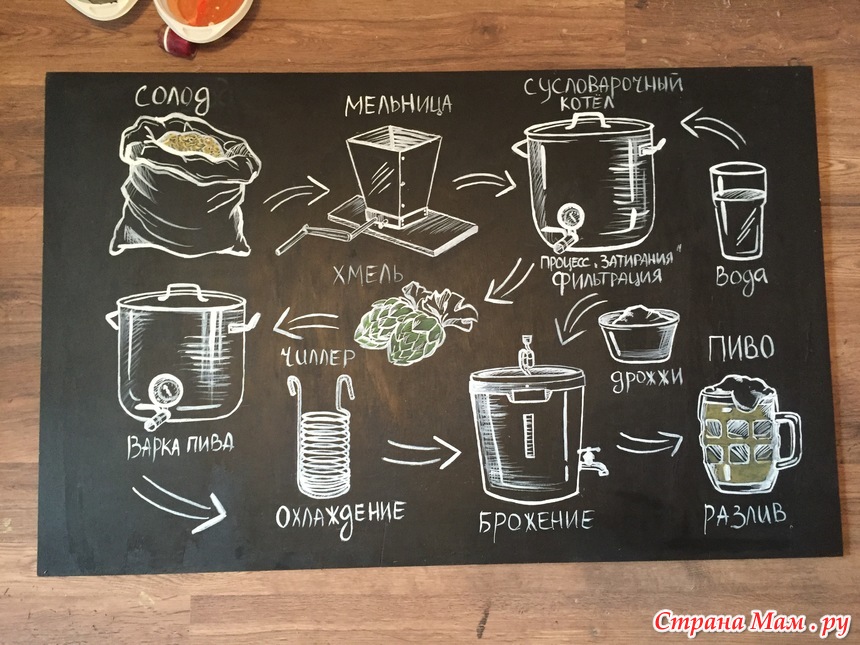 СОЛОД
МЕЛЬНИЦА
СУСЛОВАРОЧНЫЙ
КОТЁЛ
ПРОЦЕСС „ЗАТИРАНИЯ"
ФИЛЬТРАЦИЯ
ВОДА
ХМЕЛЬ
ВАРКА ПИВА
ЧИЛЛЕР
ОХЛАЖДЕНИЕ
ДРОЖЖИ
БРОЖЕНИЕ
ПИВО
РАЗЛИВ.
Страна Мам.ру